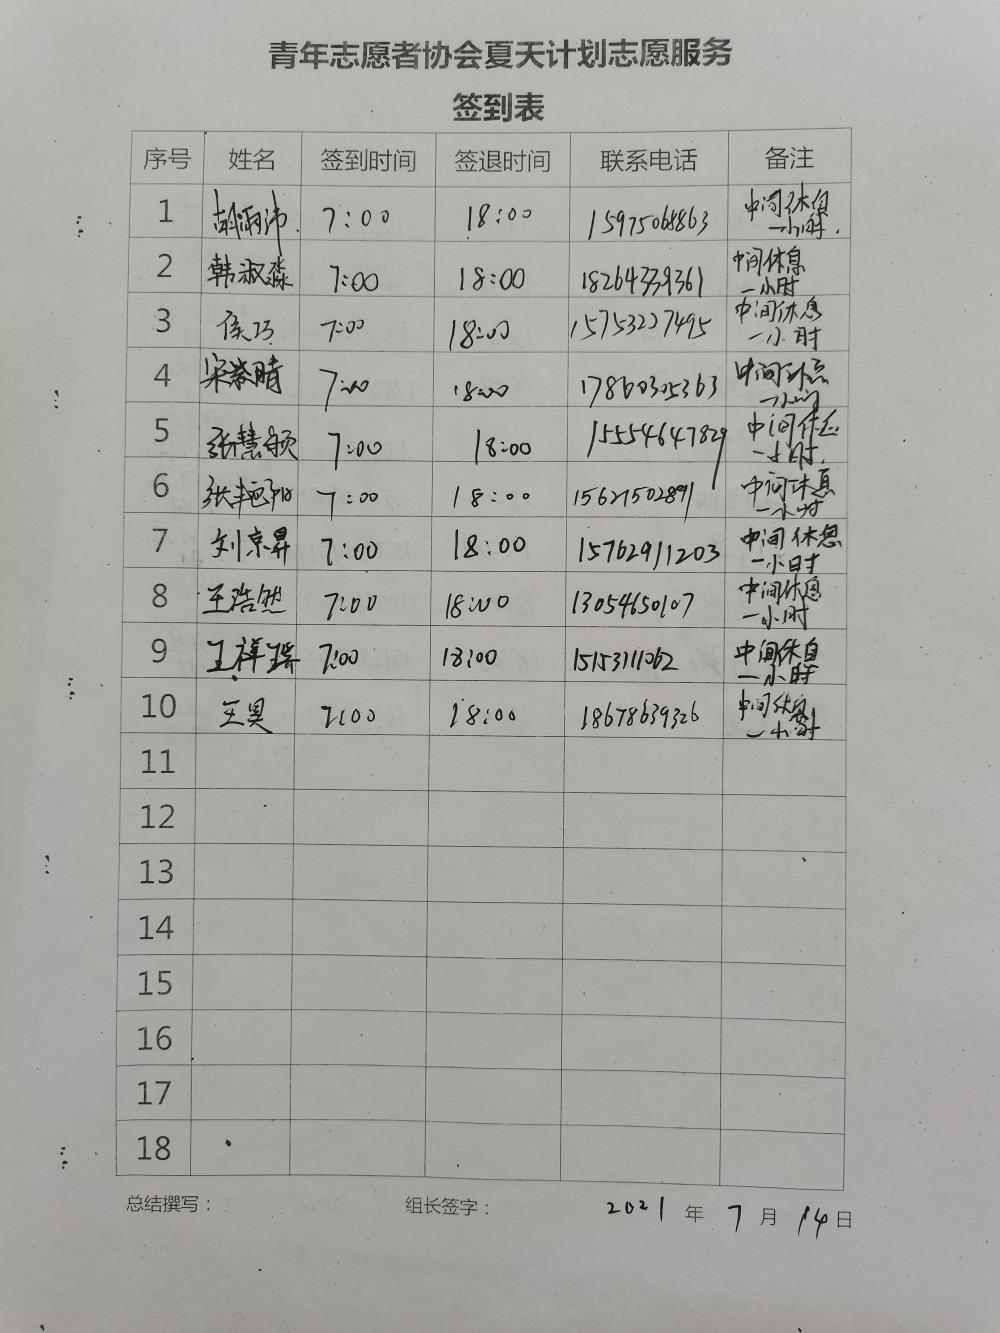 青年志愿者协会夏天计划志愿服务
签到表
序号 姓名 签到时间 签退时间 联系电话 备注
1 7:00 18:00 15975068863 中间休息一小时.
2 韩淑淼 7:00 18:00 18264339361 中间休息一小时
3 侯巧 7:00 18:00 15753227495 中间休息一小时
4 宋紫晴 7:00 18:00 17860305363 中间休息一小时
5 张慧颖 7:00 18:00 15554647829 中间休息一小时.
6 张艳阳 7:00 18:00 15621502891 中间休息一小时
7 刘京昇 7:00 18:00 15762911203 中间休息一小时
8 王浩然 7:00 18:00 13054650107 中间休息一小时
9 王祥瑞 7:00 18:00 15153111062 中间休息一小时
10 王昊 7:00 18:00 18678639326 中间休息一小时
11
12
13
14
15
16
17
18
总结撰写： 组长签字： 2021 年 7 月 14 日